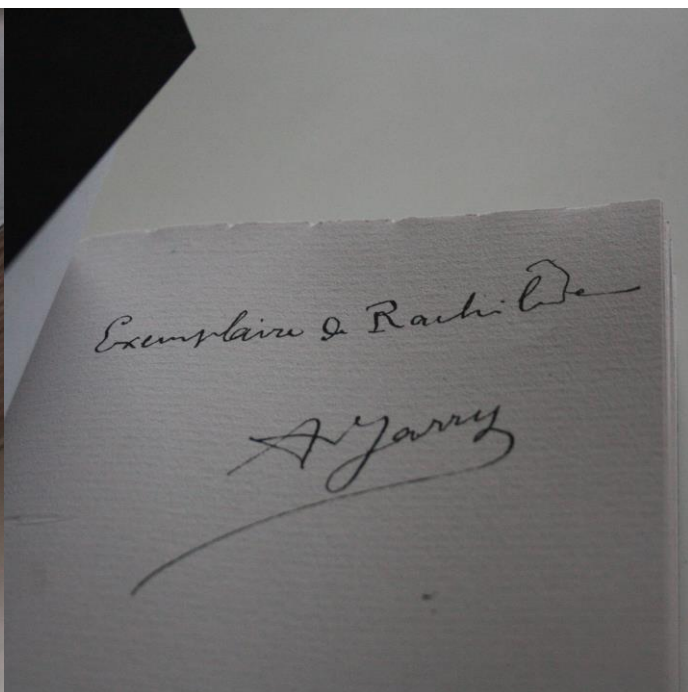 Exemplaire de Rachilde
A Jarry